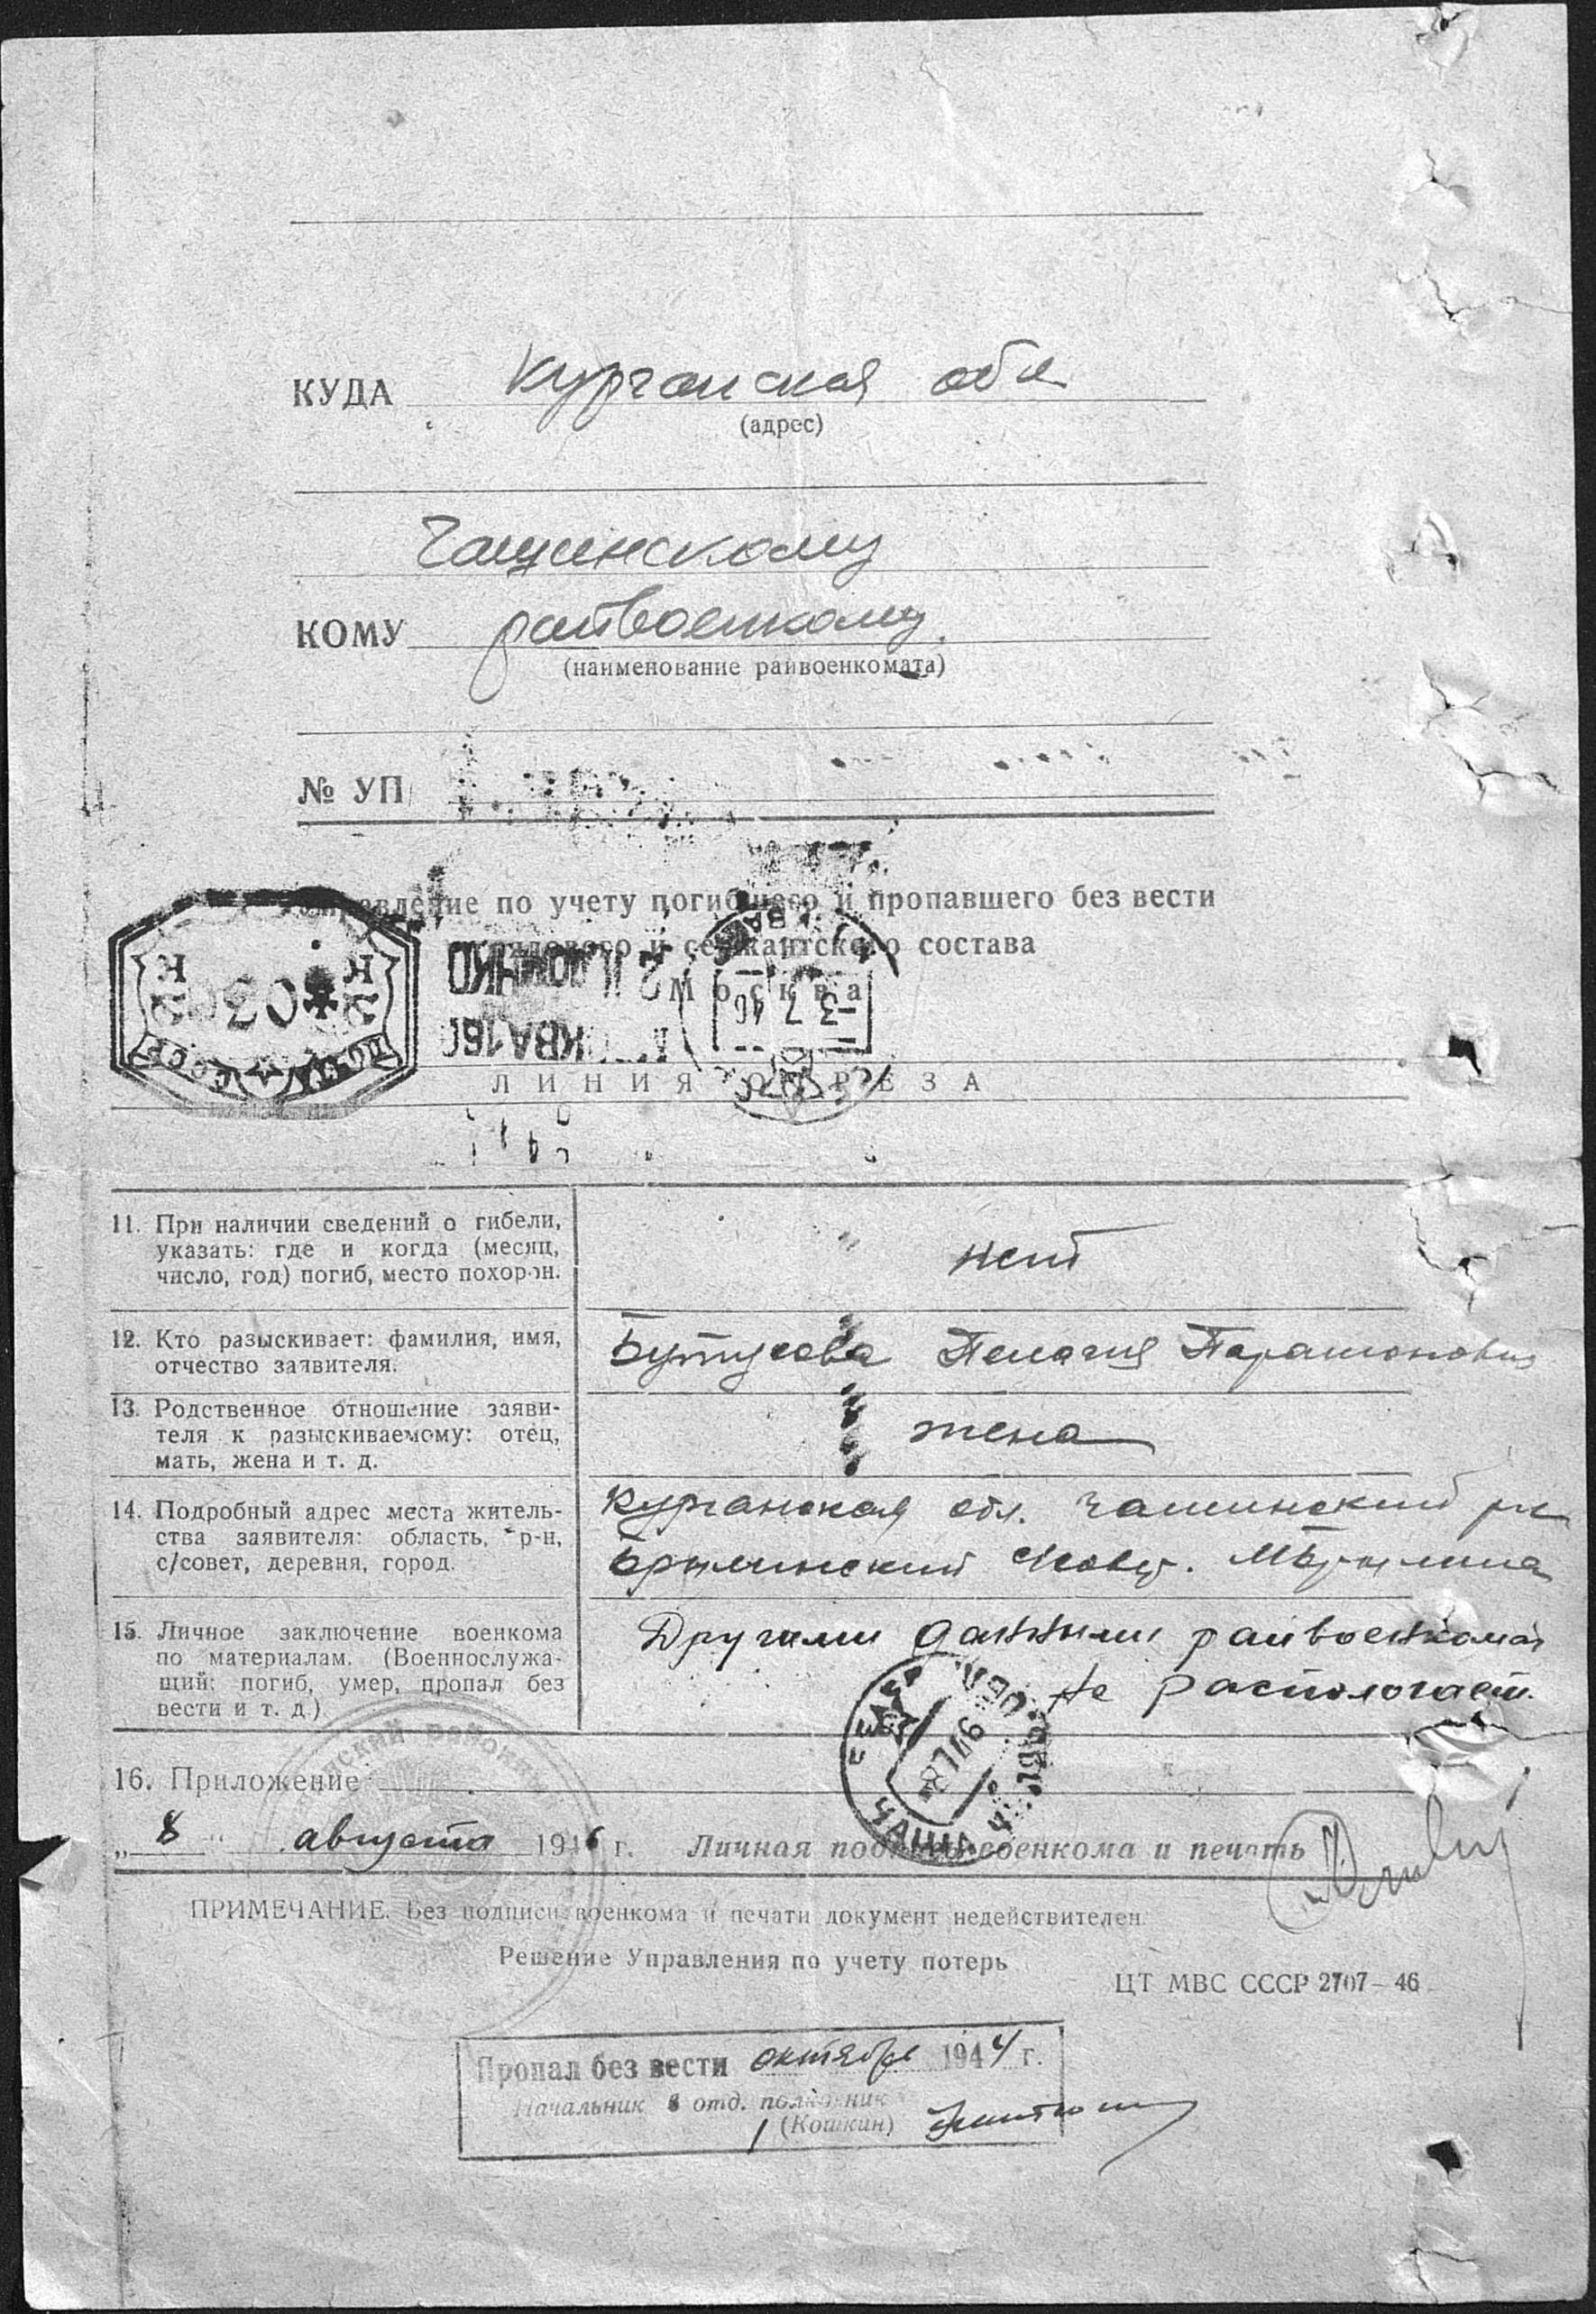 КУДА Курганская обл
(адрес)
Чашинскому
КОМУ райвоенкому.
(наименование райвоенкомата)
№ УП
Управление по учету погибшего и пропавшего без вести
рядового и сержантского состава
Москва
ЛИНИЯ ОТРЕЗА
11. При наличии сведений о гибели,
указать: где и когда (месяц,
число, год) погиб, место похорон.
нет
12. Кто разыскивает: фамилия, имя,
отчество заявителя.
Бутусова Пелагия Парамоновна
13. Родственное отношение заяви-
теля к разыскиваемому: отец,
мать, жена и т. д.
жена
14. Подробный адрес места житель-
ства заявителя: область, р-н,
с/совет, деревня, город.
Курганская обл. Чашинский
15. Личное заключение военкома
по материалам. (Военнослужа-
щий: погиб, умер, пропал без
вести и т. д.)
Другими данными райвоенкомат
не распологает.
16. Приложение
„8" августа 1946 г. Личная подпись военкома и печать
ПРИМЕЧАНИЕ. Без подписи военкома и печати документ недействителен.
Решение Управления по учету потерь
ЦТ МВС СССР 2707—46
Пропал без вести октябрь 1944 г.
Начальник 8 отд. полковник
(Кошкин)